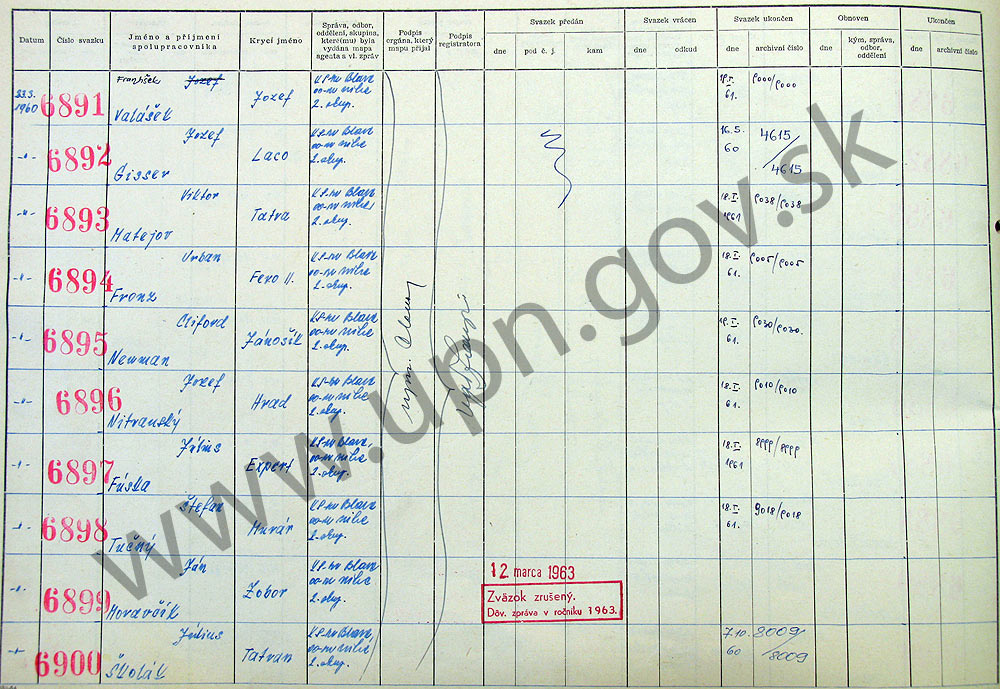 Datum
Číslo svazku
Jméno a příjmení
spolupracovníka
Krycí jméno
Správa, odbor,
oddělení, skupina,
které(mu) byla
vydána mapa
agenta a vl. zpráv
Podpis
orgána, který
mapu přijal
Podpis
registratora
Svazek předán
dne
pod č. j.
kam
Svazek vrácen
dne
odkud
Svazek ukončen
dne
archivní číslo
Obnoven
dne
kým, správa,
odbor,
oddělení
Ukončen
dne
archivní číslo
23.3.
1960
6891
František Jozef
Valášek
Jozef
2. okup.
61.
9000/9000
-"-
6892
Jozef
Gisser
Laco
2. okup.
16.5.
60
4615/
4615
-"-
6893
Viktor
Matejov
Tatra
2. okup.
18.I.
1961
9038/9038
-"-
6894
Urban
Franz
Fero II.
2. okup.
18.I.
61.
9005/9005
-"-
6895
Cliford
Newman
Jánošík
2. okup.
61.
9030/9030.
-"-
6896
Jozef
Nitranský
Hrad
2. okup.
18.I.
61.
9010/9010
-"-
6897
Július
Fúska
Expert
2. okup.
18.I.
1961
8999/8999
-"-
6898
Štefan
Tučný
Murár
2. okup.
18.I.
61.
9018/9018
-"-
6899
Ján
Moravčík
Zobor
2. okup.
12 marca 1963
Zväzok zrušený.
Dôv. zpráva v ročníku 1963.
-"-
6900
Július
Školák
Tatran
2. okup.
7.10.
60
8009
/8009
www.upn.gov.sk